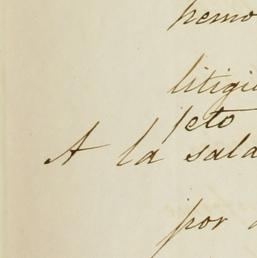 hemo
litigi
jeto
A la sala
por